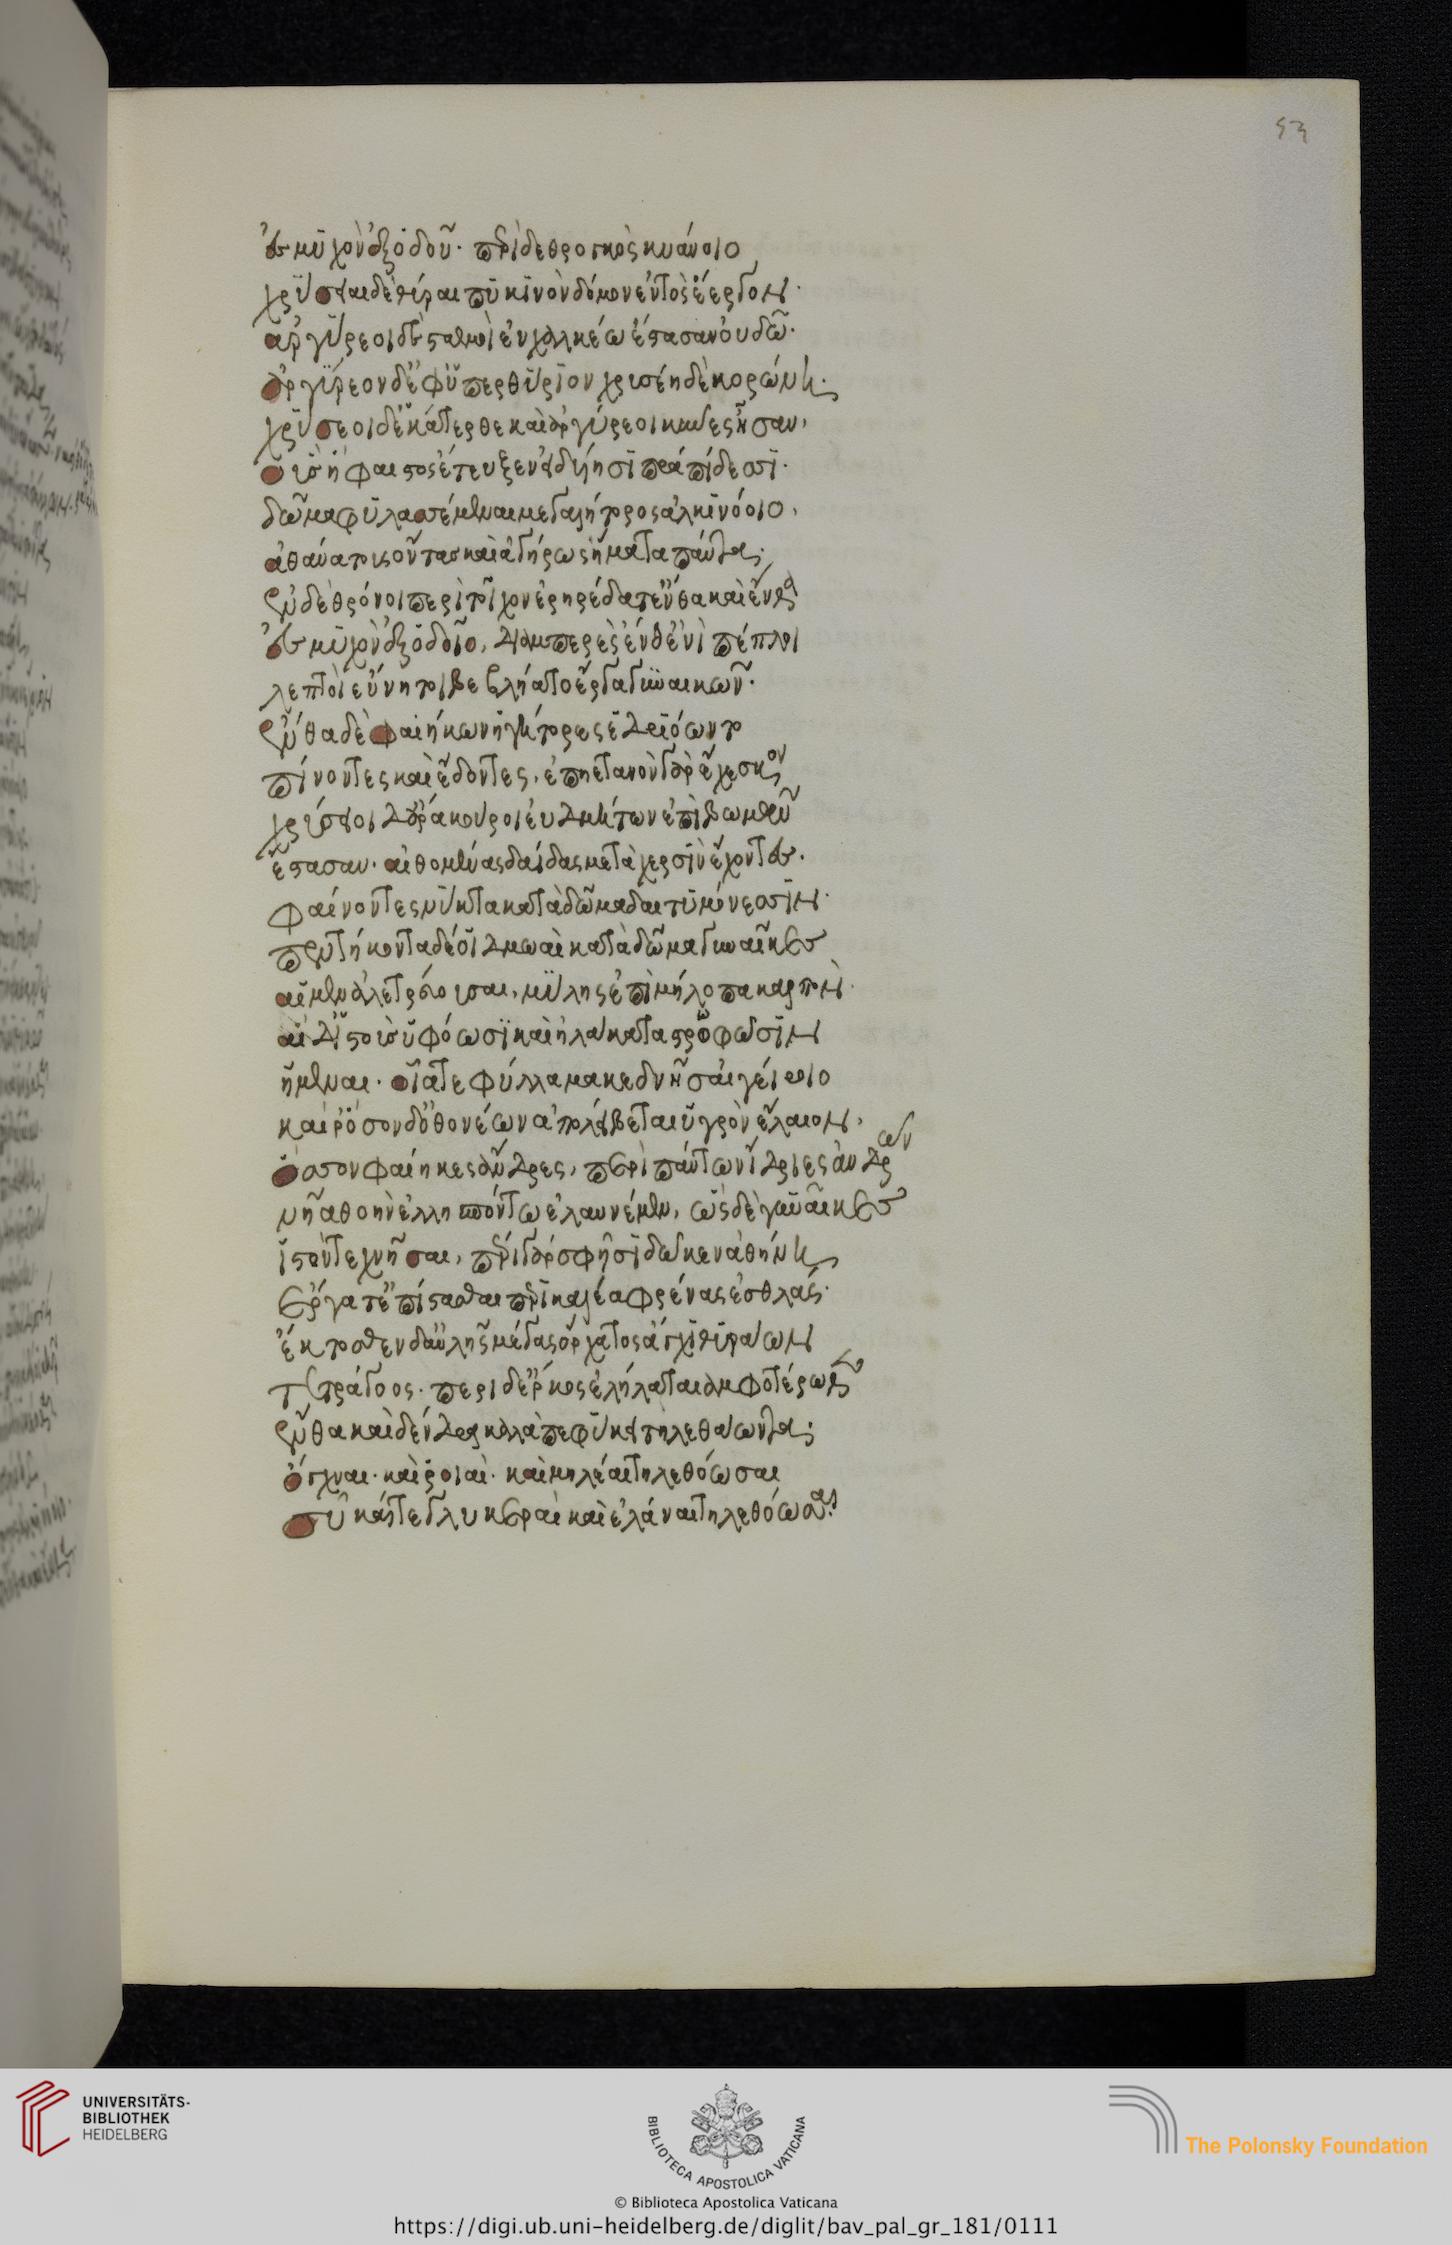 53
ἐς μυχὸν ἐξ οὐδοῦ· περὶ δὲ θριγκὸς κυάνοιο
χρύσειαι δὲ θύραι πυκινὸν δόμον ἐντὸς ἔεργον·
ἀργύρεοι δὲ σταθμοὶ ἐν χαλκέω ἕστασαν οὐδῶ·
ἀργύρεον δ' ἐφ' ὑπερθύριον χρυσέη δὲ κορώνη·
χρύσεοι δ' ἑκάτερθε καὶ ἀργύρεοι κύνες ἦσαν,
οὓς ἥφαιστος ἔτευξεν ἰδυίησι πραπίδεσι·
δῶμα φυλασσέμεναι μεγαλήτορος ἀλκινόοιο,
ἀθανάτους ὄντας καὶ ἀγήρως ἤματα πάντα·
ἐν δὲ θρόνοι περὶ τοῖχον ἐρηρέδατ' ἔνθα καὶ ἔνθα
ἐς μυχὸν ἐξ οὐδοῖο, διαμπερὲς ἔνθ' ἐνὶ πέπλοι
λεπτοὶ εὔνητοι βεβλήατο ἔργα γυναικῶν·
ἔνθα δὲ φαιήκων ἡγήτορες ἑδριόωντο
πίνοντες καὶ ἔδοντες, ἐπηετανὸν γὰρ ἔχεσκον
χρύσειοι δ' ἄρα κοῦροι ἐυδμήτων ἐπὶ βωμῶν
ἕστασαν· αἰθομένας δαΐδας μετὰ χερσὶν ἔχοντες.
φαίνοντες νύκτα κατὰ δῶμα δαιτυμόνεσιν·
πεντήκοντα δέ οἱ δμωαὶ κατὰ δῶμα γυναῖκες
αἱ μὲν ἀλετρεύουσαι, μύλης ἐπὶ μήλοπα καρπόν·
αἱ δ' ἱστοὺς ὑφόωσι καὶ ἠλάκατα στρωφῶσιν
ἥμεναι· οἷά τε φύλλα μακεδνῆς αἰγείροιο
καιροσέων δ' ὀθονέων ἀπολείβεται ὑγρὸν ἔλαιον,
ὅσσον φαίηκες ἄνδρες, περὶ πάντων ἴδριες ἀνδρῶν
νῆα θοὴν ἐνὶ πόντω ἐλαυνέμεν, ὣς δὲ γυναῖκες
ἱστὸν τεχνῆσαι, περὶ γάρ σφησι δῶκεν ἀθήνη
ἔργα τ' ἐπίστασθαι περικαλέα φρένας ἐσθλάς·
ἔκτοσθεν δ' αὐλῆς μέγας ὄρχατος ἄγχι θυράων
τετράγυος· περὶ δ' ἕρκος ἐλήλαται ἀμφοτέρωθεν
ἔνθα καὶ δένδρεα καλὰ πεφύκει τηλεθάωντα·
ὄγχναι· καὶ ῥοιαὶ· καὶ μηλέαι τηλεθόωσαι
συκαῖ τε γλυκεραὶ καὶ ἐλάναι τηλεθόωσαι·
UNIVERSITÄTS-
BIBLIOTHEK
HEIDELBERG
BIBLIOTECA APOSTOLICA VATICANA
The Polonsky Foundation
© Biblioteca Apostolica Vaticana
https://digi.ub.uni-heidelberg.de/diglit/bav_pal_gr_181/0111